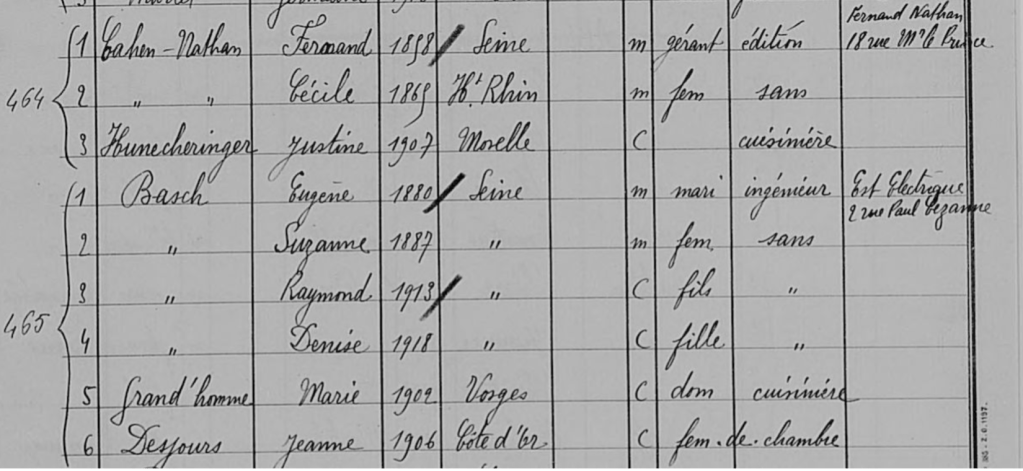 464 1 Cahen-Nathan Fernand 1858 Seine m gérant édition Fernand Nathan
18 rue Mr le Prince
2 " " Cécile 1865 Ht Rhin m fem sans
3 Hunecheringer Justine 1907 Moselle C cuisinière
465 1 Basch Eugène 1880 Seine m mari ingénieur Est Electrique
2 rue Paul Cezanne
2 " Suzanne 1887 " m fem. sans
3 " Raymond 1913 " C fils "
4 " Denise 1918 " C fille "
5 Grand'homme Marie 1902 Vosges C dom cuisinière
6 Desjours Jeanne 1906 Côte d'Or C fem. de. chambre